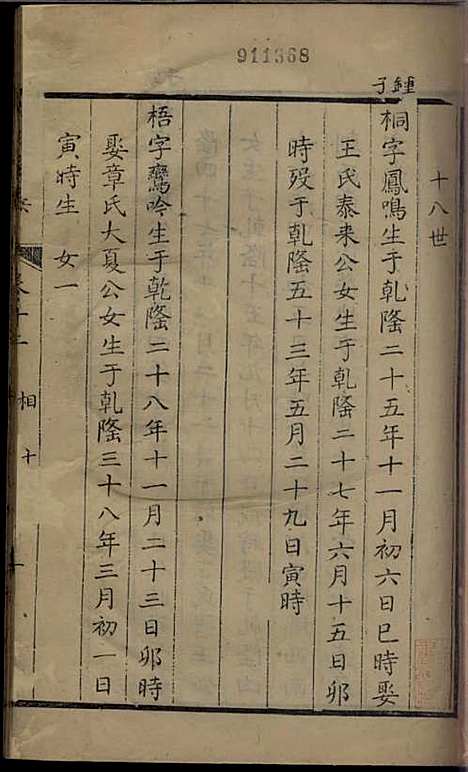 911368
鍾子
十八世
桐字鳳鳴生于乹隆二十五年十一月初六日巳時娶
王氏泰来公女生于乹隆二十七年六月十五日卯
時殁于乹隆五十三年五月二十九日寅時
梧字鸞吟生于乾隆二十八年十一月二十三日卯時
娶章氏大夏公女生于乹隆三十八年三月初一日
寅時生 女一
卷十二 相 十